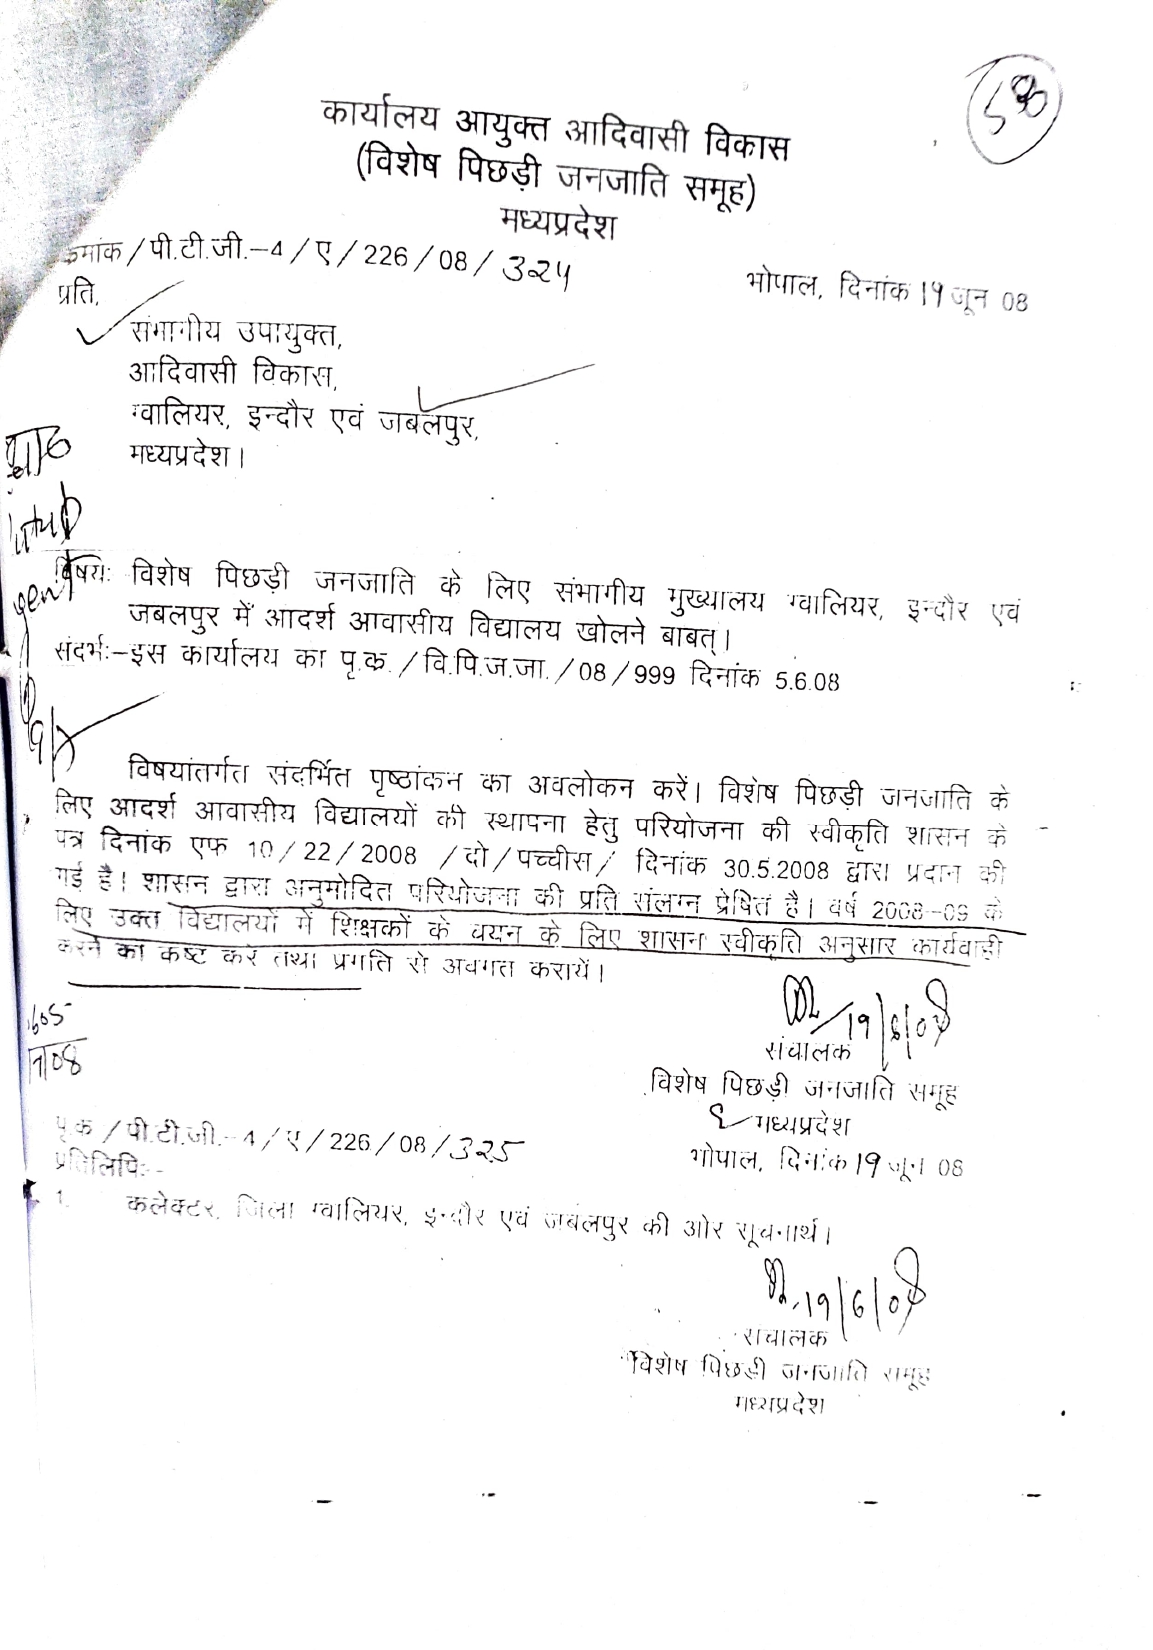 कार्यालय आयुक्त आदिवासी विकास
(विशेष पिछड़ी जनजाति समूह)
मध्यप्रदेश
क्रमांक/पी.टी.जी.–4/ए/226/08/324
भोपाल, दिनांक 19 जून 08
प्रति,
संभागीय उपायुक्त,
आदिवासी विकास,
ग्वालियर, इन्दौर एवं जबलपुर,
मध्यप्रदेश।
विषयः विशेष पिछड़ी जनजाति के लिए संभागीय मुख्यालय ग्वालियर, इन्दौर एवं
जबलपुर में आदर्श आवासीय विद्यालय खोलने बाबत्।
संदर्भः–इस कार्यालय का पृ.क्र./वि.पि.ज.जा./08/999 दिनांक 5.6.08
विषयांतर्गत संदर्भित पृष्ठांकन का अवलोकन करें। विशेष पिछड़ी जनजाति के
लिए आदर्श आवासीय विद्यालयों की स्थापना हेतु परियोजना की स्वीकृति शासन के
पत्र दिनांक एफ 10/22/2008 /दो/पच्चीस/ दिनांक 30.5.2008 द्वारा प्रदान की
गई है। शासन द्वारा अनुमोदित परियोजना की प्रति संलग्न प्रेषित है। वर्ष 2008–09 के
लिए उक्त विद्यालयों में शिक्षकों के चयन के लिए शासन स्वीकृति अनुसार कार्यवाही
करने का कष्ट करें तथा प्रगति से अवगत करायें।
19/6/08
संचालक
विशेष पिछड़ी जनजाति समूह
मध्यप्रदेश
पृ.क्र/पी.टी.जी.–4/ए/226/08/325
भोपाल, दिनांक 19 जून 08
प्रतिलिपिः–
1. कलेक्टर, जिला ग्वालियर, इन्दौर एवं जबलपुर की ओर सूचनार्थ।
19/6/08
संचालक
विशेष पिछड़ी जनजाति समूह
मध्यप्रदेश